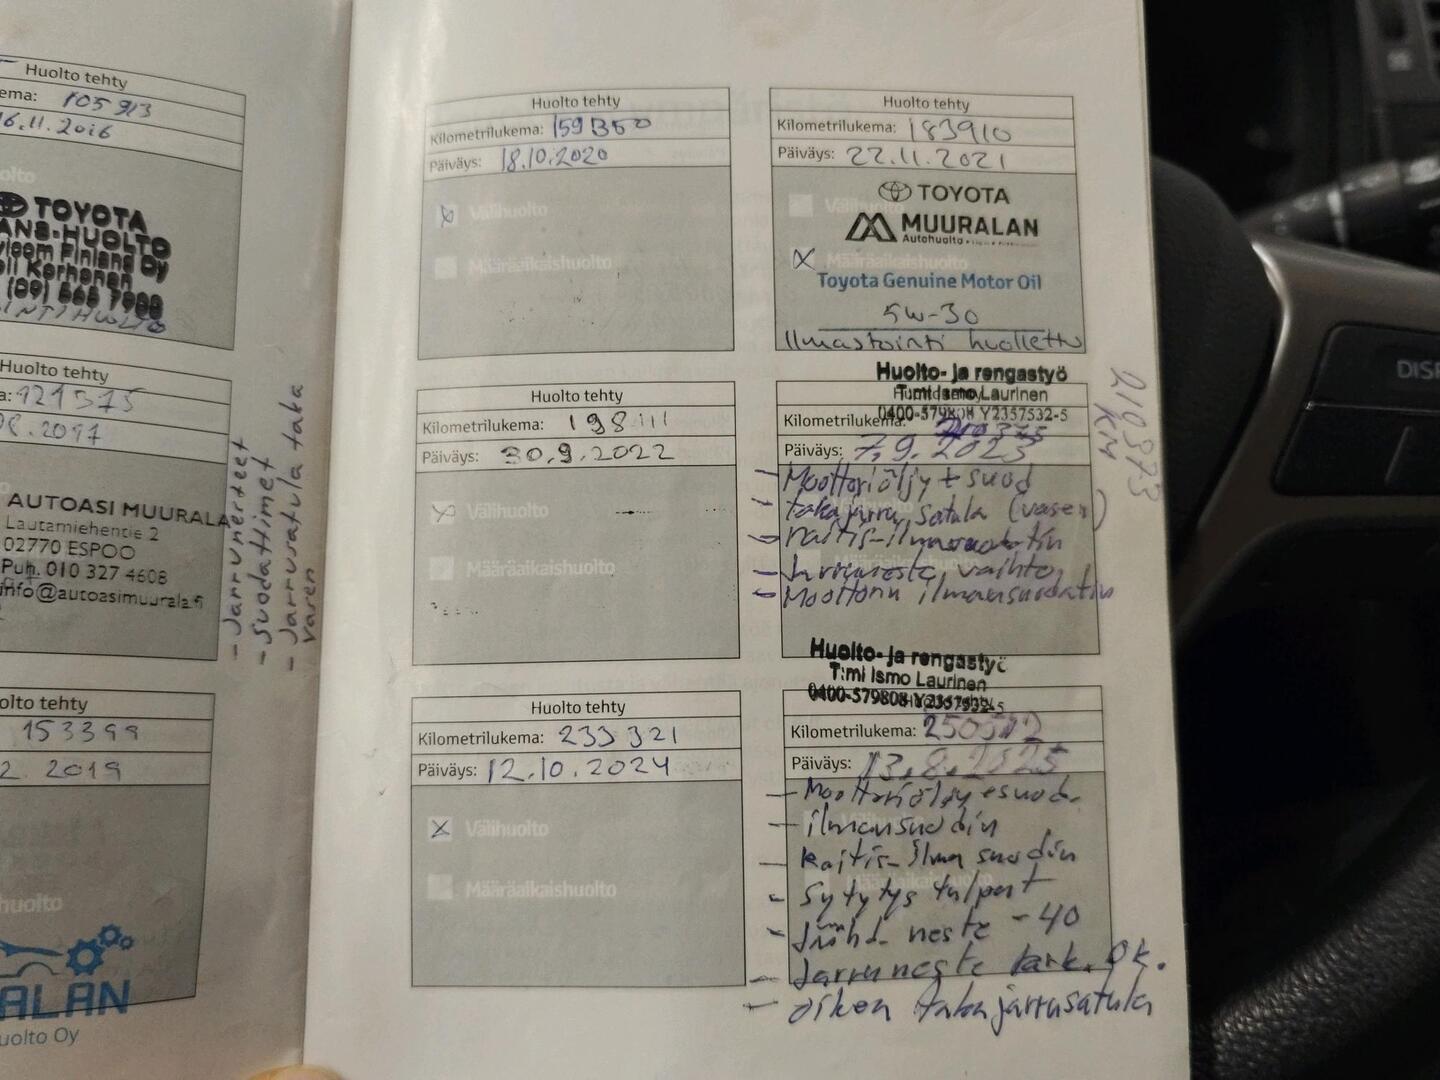 Huolto tehty
ema: 105 913
16.11.2016
olto
TOYOTA
ANS-HUOLTO
Finland Oy
Korhonen
(09) 565 7900
Huolto tehty
a: 121375
AUTOASI MUURALA
Lautamiehentie 2
02770 ESPOO
Puh. 010 327 4608
info@autoasimuurala.fi
- Jarrunesteet
- Suodattimet
- Jarrusatula taka
vasen
olto tehty
153399
2. 2019
huolto
ALAN
uolto Oy
Huolto tehty
Kilometrilukema: 159350
Päiväys: 18.10.2020
Välihuolto
Määräaikaishuolto
Huolto tehty
Kilometrilukema: 198111
Päiväys: 30.9.2022
Välihuolto
Määräaikaishuolto
Huolto tehty
Kilometrilukema: 233 321
Päiväys: 12.10.2024
Välihuolto
Määräaikaishuolto
Huolto tehty
Kilometrilukema: 183910
Päiväys: 22.11.2021
TOYOTA
MUURALAN
Autohuolto
Määräaikaishuolto
Toyota Genuine Motor Oil
5W-30
Ilmastointi huollettu
Huolto- ja rengastyö
T:mi Ismo Laurinen
0400-579808 Y2357532-5
Kilometrilukema:
Päiväys: 7.9.2023
- Moottoriöljy + suod
- takajarru satula (vasen)
- raitis-ilmasuodatin
- Jarruneste vaihto
- Moottorin ilmansuodatin
210373
KM
Huolto- ja rengastyö
T:mi Ismo Laurinen
0400-579808 Y2357532-5
Kilometrilukema:
Päiväys: 13.8.2025
- Moottoriöljy + suod.
- ilmansuodin
- Raitis-ilma suodin
- Sytytys tulpat
- Jäähd. neste -40
- Jarruneste tark. Ok.
- oikea takajarrusatula
DISP